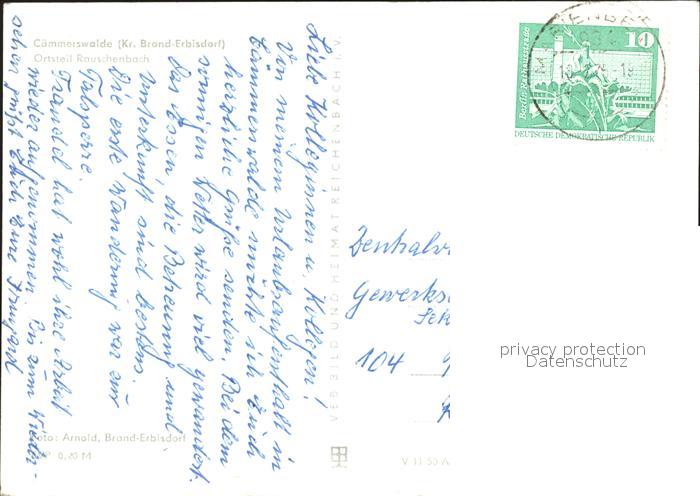 Cämmerswalde (Kr. Brand-Erbisdorf)
Ortsteil Rauschenbach
Liebe Kolleginnen u. Kollegen!
Von meinem Urlaubsaufenthalt in
Cämmerswalde möchte ich Euch
herzliche Grüße senden. Bei dem
sonnigen Wetter wird viel gewandert.
Das Essen, die Betreuung und
Unterkunft sind bestens.
Die erste Wanderung war zur
Talsperre.
Traudel hat wohl ihre Arbeit
wieder aufgenommen. Bis zum Wieder-
sehen grüßt Euch Eure Irmgard
Foto: Arnold, Brand-Erbisdorf
0,20 M
VEB BILD UND HEIMAT REICHENBACH i. V.
V 11 50 A
Berlin, Rathausstraße
10
DEUTSCHE DEMOKRATISCHE REPUBLIK
Zentralv
Gewerks
Sek
104
privacy protection
Datenschutz